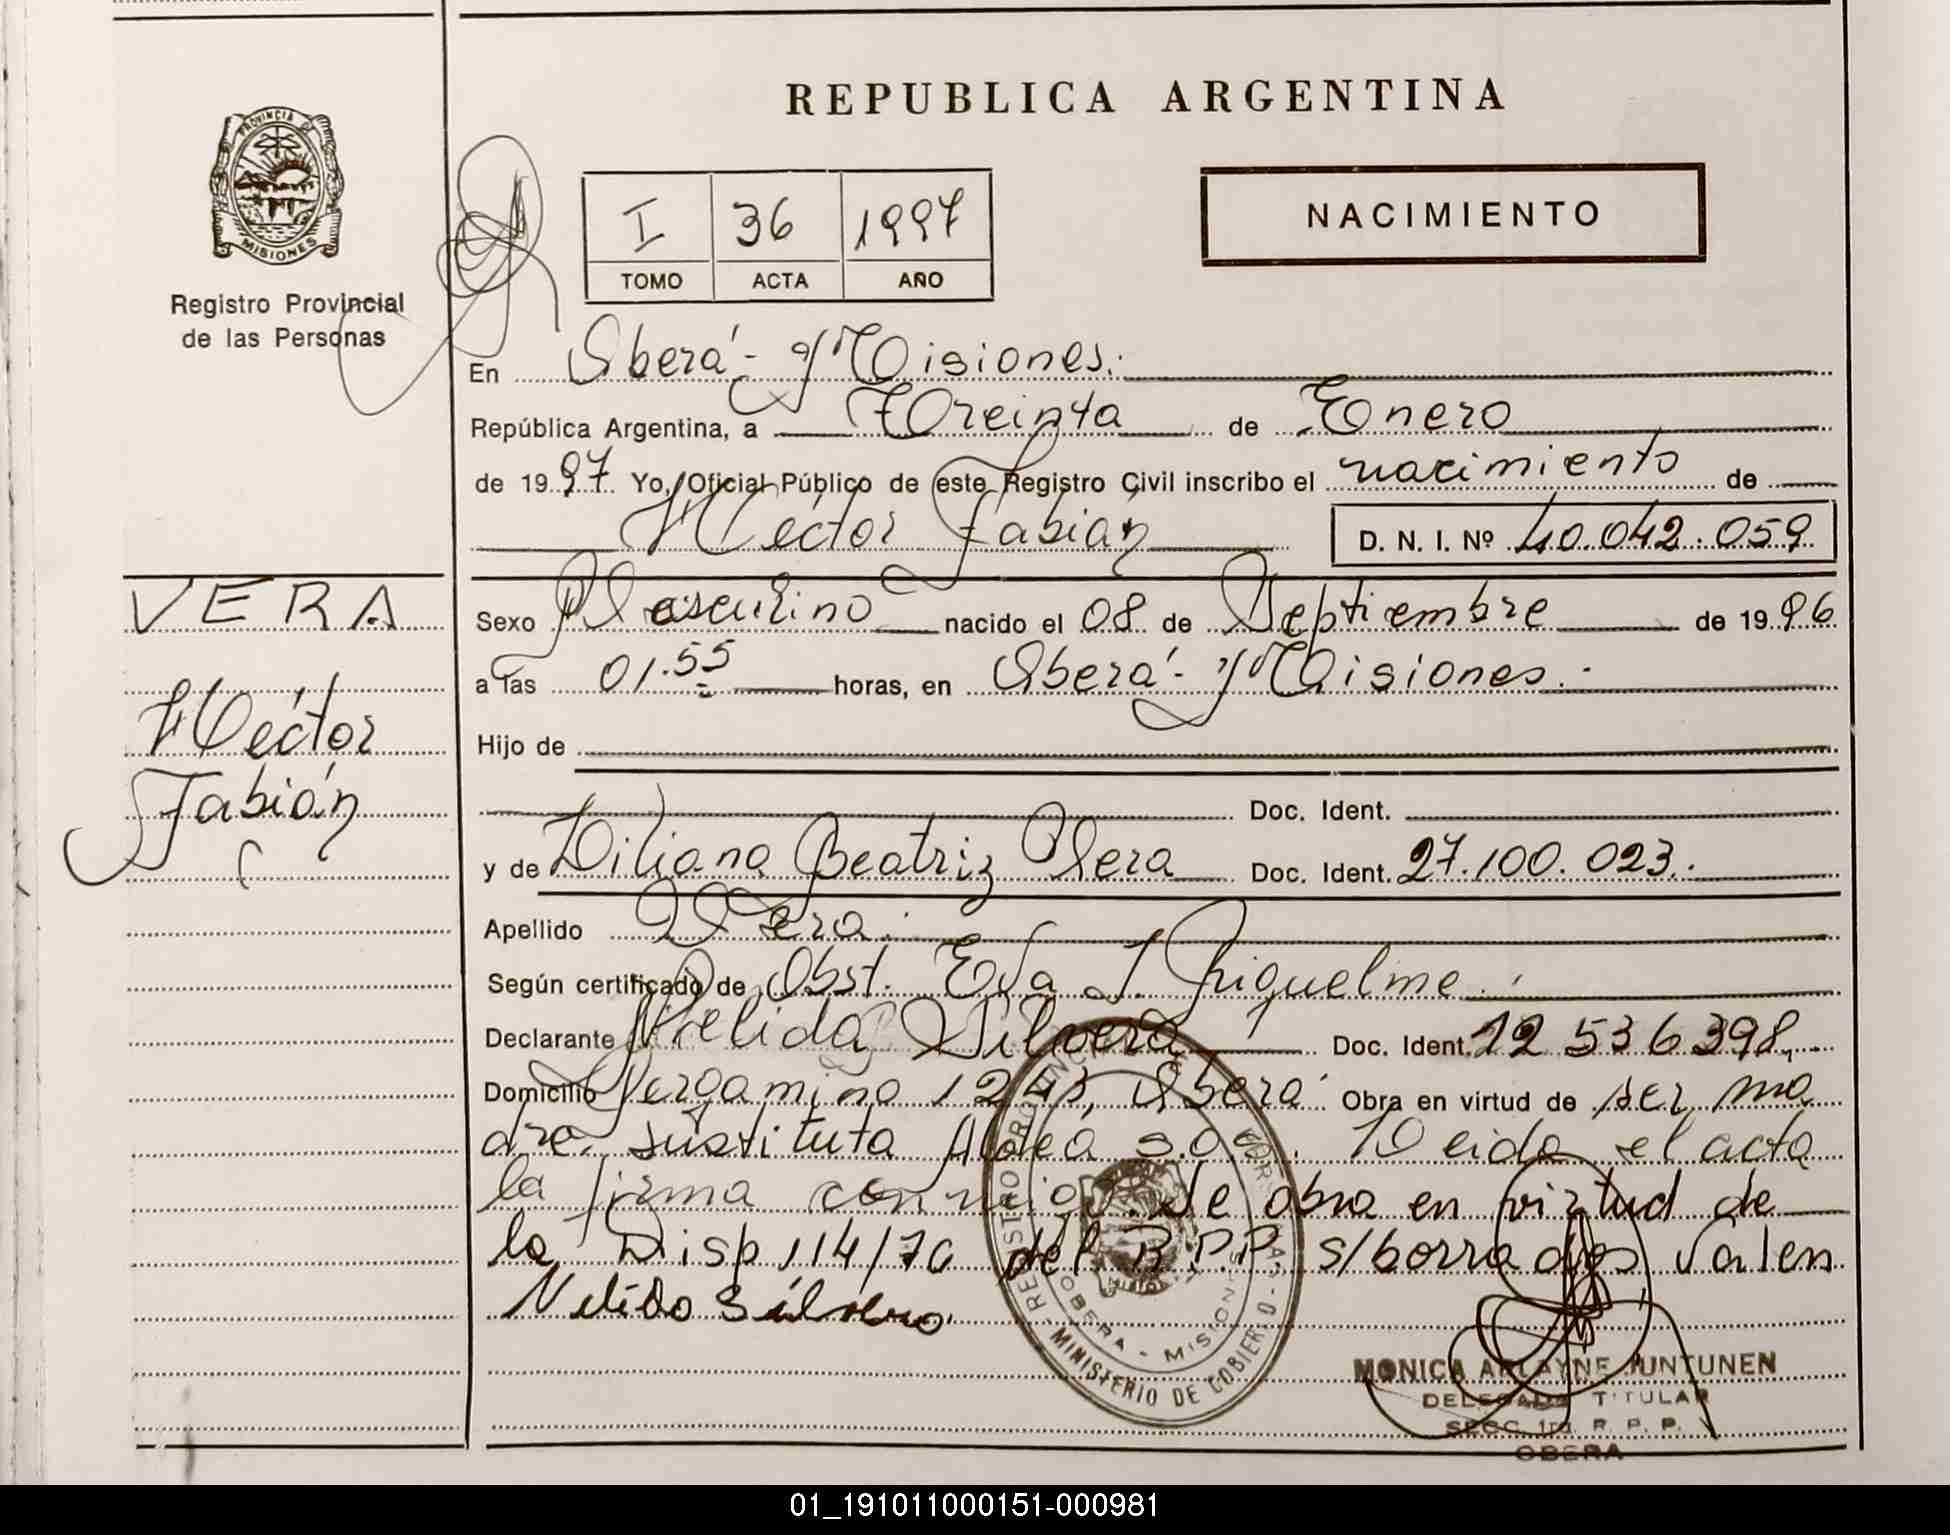 REPUBLICA ARGENTINA
PROVINCIA DE
MISIONES
Registro Provincial
de las Personas
I 36 1997
TOMO ACTA AÑO
NACIMIENTO
En Oberá - Misiones.
República Argentina, a Treinta de Enero
de 1997 Yo, Oficial Público de este Registro Civil inscribo el nacimiento de
Héctor Fabián D. N. I. Nº 40.042.059
VERA
Héctor
Fabián
Sexo Masculino nacido el 08 de Septiembre de 1996
a las 01.55 horas, en Oberá - Misiones.
Hijo de
Doc. Ident.
y de Liliana Beatriz Vera Doc. Ident. 27.100.023.
Apellido Vera.
Según certificado de Obst. Eva Riquelme.
Declarante Nelida Silvera Doc. Ident. 12 536 398
Domicilio Pergamino 1243, Oberá Obra en virtud de ser ma
dre sustituta Leida el acta
la firma conmigo. Se obra en virtud de
la Disp 114/70 del R.P.P. s/borrados Valen
Nelida Silvera
MINISTERIO DE GOBIERNO
OBERA - MISIONES
MONICA ARLAYNE JUNTUNEN
DELEGADA TITULAR
SECC. 1ra R. P. P.
OBERA
01_191011000151-000981